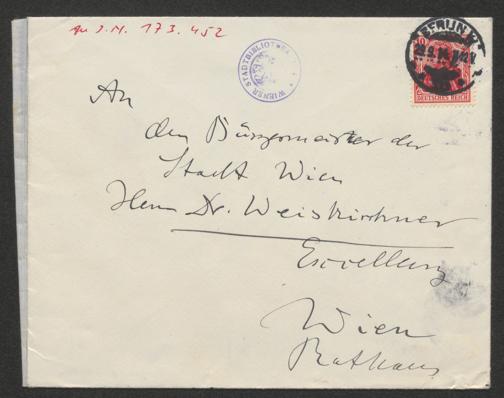 Zu I.N. 173.452
WIENER STADTBIBLIOTHEK
BERLIN
DEUTSCHES REICH
An
den Bürgermeister der
Stadt Wien
Herrn Dr. Weiskirchner
Excellenz
Wien
Rathaus